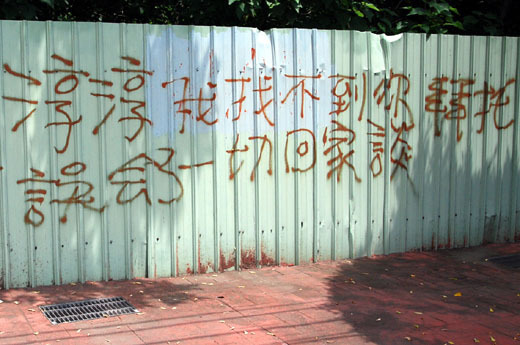 淳淳我找不到你拜托
誤会一切回家談